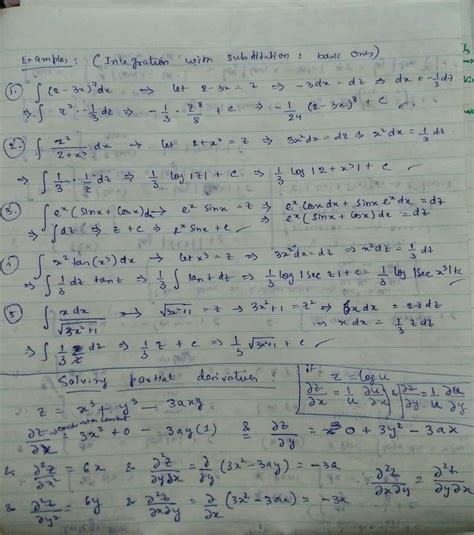 Examples: (Integration with substitution: basic ones)
1. ∫(2-3x)⁷dx → let 2-3x = z → -3dx = dz ⇒ dx = -1/3 dz
⇒ ∫ z⁷ · -1/3 dz ⇒ -1/3 · z⁸/8 + c ⇒ -1/24 (2-3x)⁸ + c ✓
2. ∫ x²/(2+x³) dx → let 2+x³ = z ⇒ 3x²dx = dz ⇒ x²dx = 1/3 dz
⇒ ∫ 1/3 · 1/z dz ⇒ 1/3 log|z| + c ⇒ 1/3 log|2+x³| + c ✓
3. ∫ eˣ(sinx + cosx)dx → eˣ sinx = z ⇒ eˣ cosx dx + sinx eˣ dx = dz
⇒ eˣ(sinx + cosx)dx = dz
⇒ ∫dz ⇒ z + c ⇒ eˣ sinx + c ✓
4 ∫ x² tan(x³) dx → let x³ = z ⇒ 3x²dx = dz ⇒ x²dz = 1/3 dz
⇒ ∫ 1/3 dz tanz ⇒ 1/3 ∫ tanz dz ⇒ 1/3 log|sec z| + c ⇒ 1/3 log|sec x³| + c
5 ∫ x dx/√(3x²+1) → √(3x²+1) = z → 3x²+1 = z² ⇒ 6x dx = 2z dz
⇒ x dx = 1/3 z dz
⇒ ∫ 1/3 z/z dz ⇒ 1/3 z + c ⇒ 1/3 √(3x²+1) + c ✓
Solving partial derivatives
if z = log u
∂z/∂x = 1/u ∂u/∂x & ∂z/∂y = 1/u ∂u/∂y
z = x³ + y³ - 3axy
∂z/∂x = 3x² + 0 - 3ay(1) & ∂z/∂y = 0 + 3y² - 3ax
& ∂²z/∂x² = 6x & ∂²z/∂y∂x = ∂/∂y (3x² - 3ay) = -3a
∴ ∂²z/∂x∂y = ∂²z/∂y∂x
& ∂²z/∂y² = 6y & ∂²z/∂x∂y = ∂/∂x (3x² - 3ax) = -3a